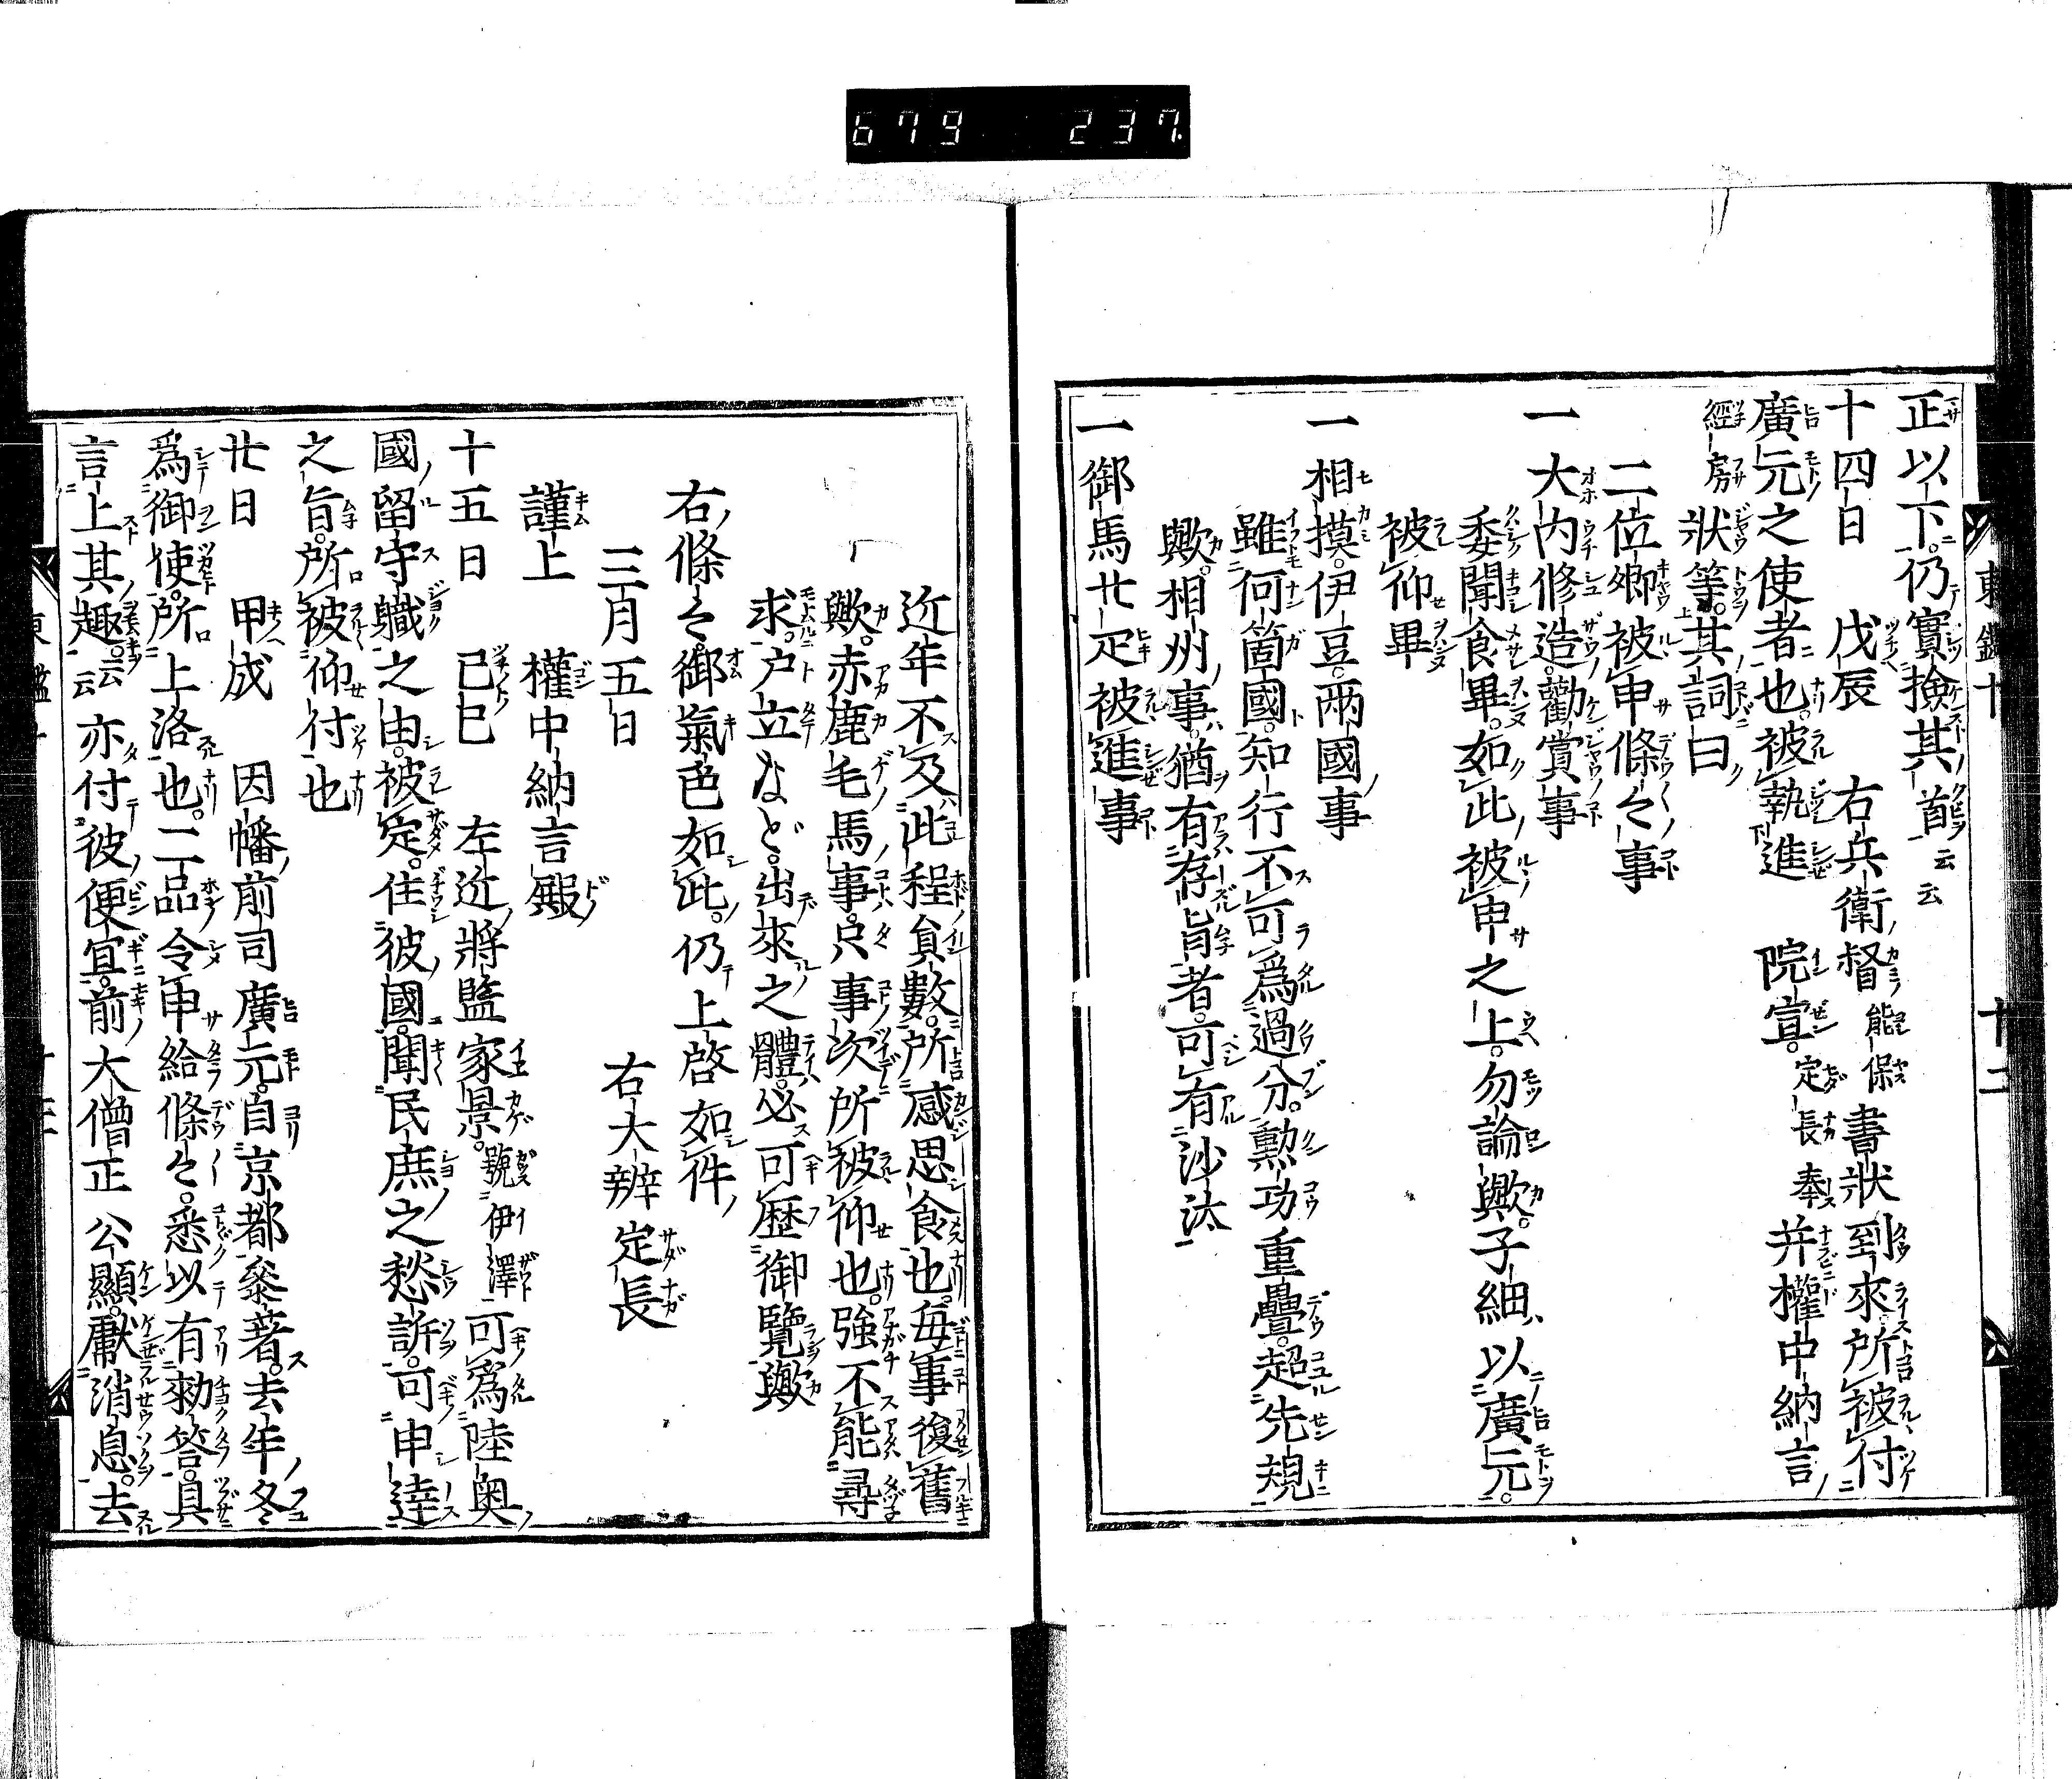 679 237
東鑑十 十二
正以下。仍實撿其首云云
十四日 戊辰 右兵衛督能保書狀到來。所被付
廣元之使者也。被執進 院宣。定長奉并權中納言
經房狀等。其詞曰
二位卿被申條々事
一 大内修造。勸賞事
委聞食畢。如此被申之上。勿論歟。子細以廣元。
被仰畢
一 相摸。伊豆。兩國事
雖何箇國。知行不可爲過分。勲功重疊。超先規
歟。相州事。猶有存旨者。可有沙汰
一 御馬廿疋被進事
近年不及此程員數。所感思食也。毎事復舊
歟。赤鹿毛馬事。只事次所被仰也。強不能尋
求。戸立など。出來之體。必可歴御覽歟
右條々。御氣色如此。仍上啓如件
三月五日 右大辨定長
謹上 權中納言殿
十五日 己巳 左近將監家景。號伊澤可爲陸奥
國留守職之由。被定。住彼國。聞民庶之愁訴。可申達
之旨。所被仰付也
廿日 甲戌 因幡前司廣元。自京都參著。去年冬
爲御使。所上洛也。二品令申給條々。悉以有勅答。具
言上其趣。云云亦付彼便宜。前大僧正公顯。獻消息。去